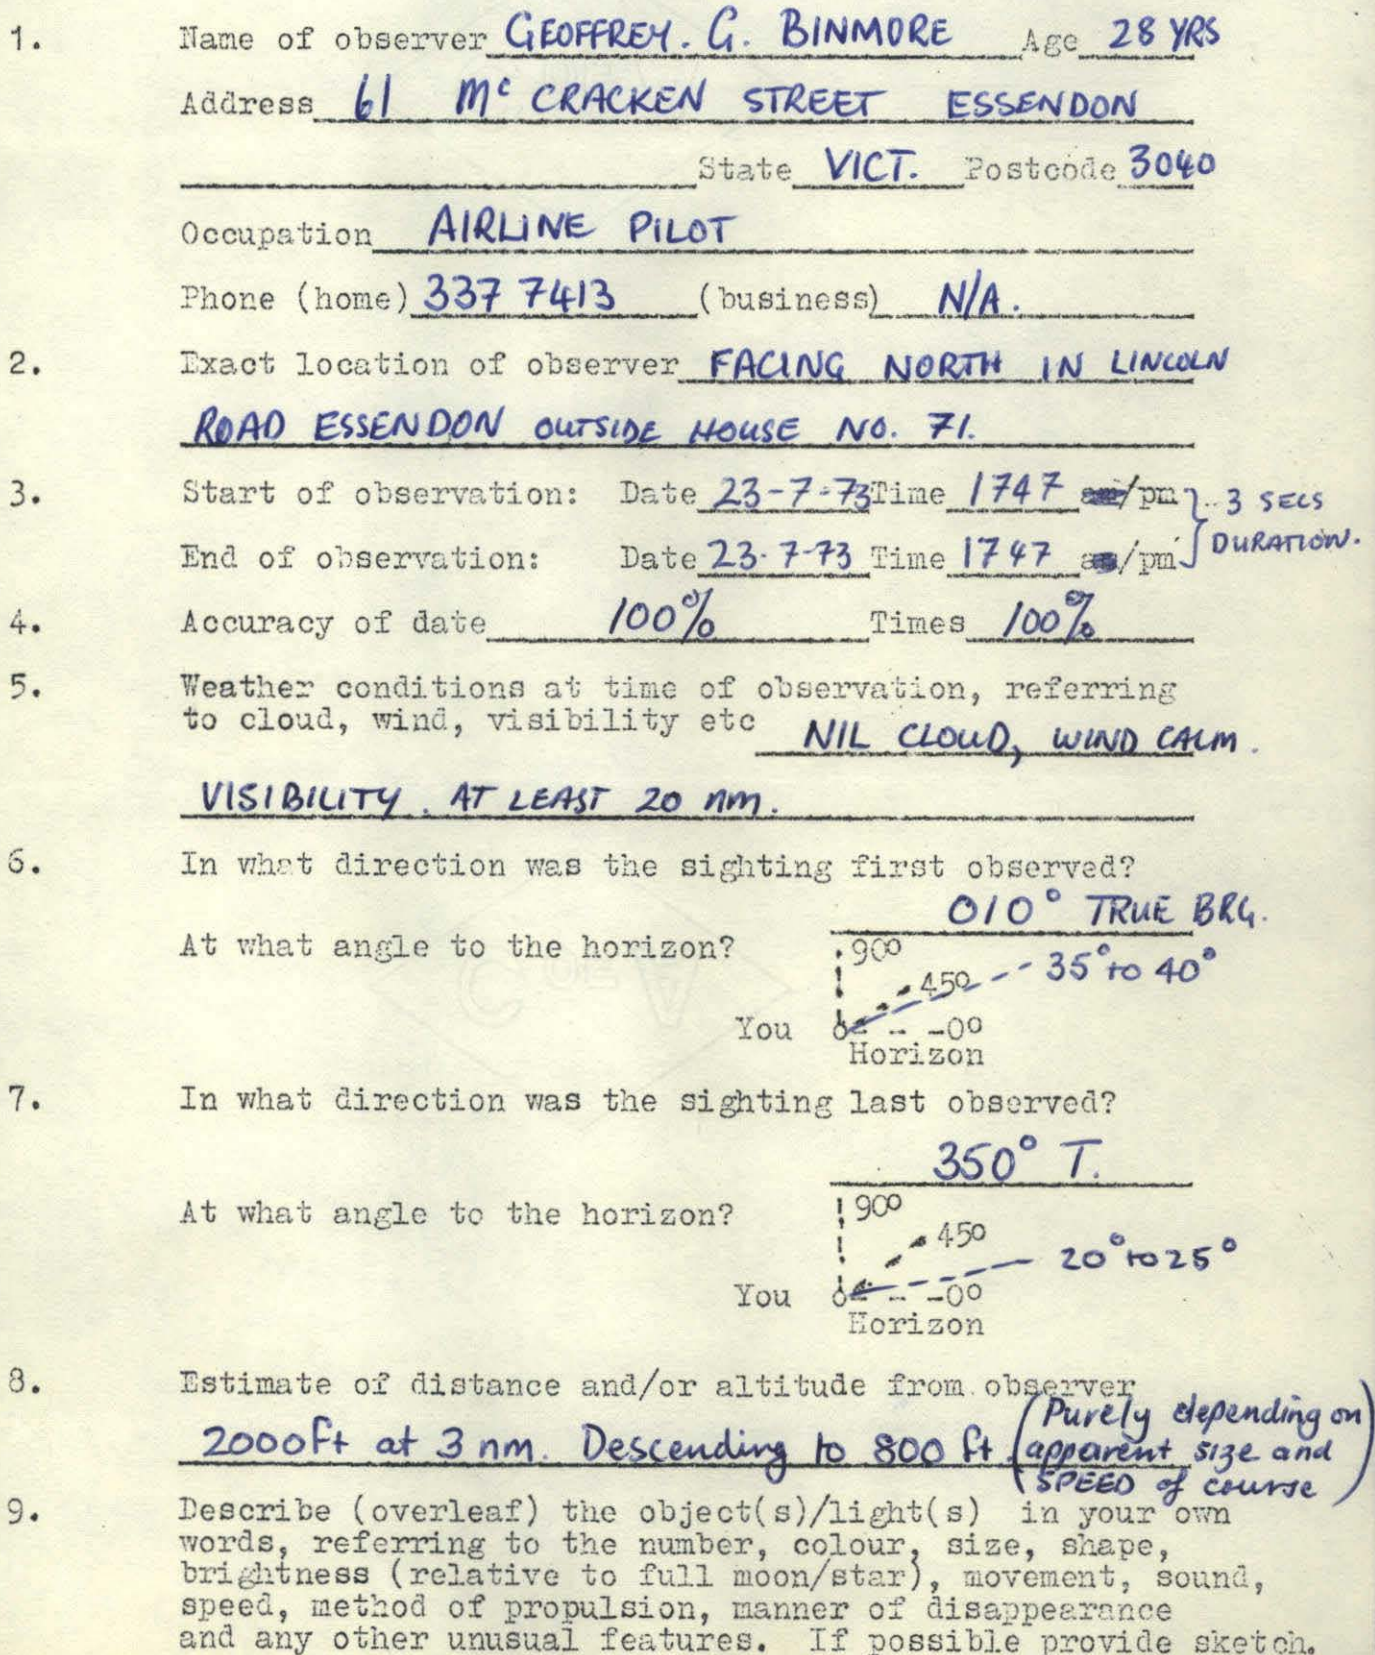 1. Name of observer GEOFFREY. G. BINMORE Age 28 YRS
Address 61 Mc CRACKEN STREET ESSENDON
State VICT. Postcode 3040
Occupation AIRLINE PILOT
Phone (home) 337 7413 (business) N/A.
2. Exact location of observer FACING NORTH IN LINCOLN
ROAD ESSENDON OUTSIDE HOUSE NO. 71.
3. Start of observation: Date 23-7-73 Time 1747 am/pm } 3 SECS
End of observation: Date 23-7-73 Time 1747 am/pm DURATION.
4. Accuracy of date 100% Times 100%
5. Weather conditions at time of observation, referring
to cloud, wind, visibility etc NIL CLOUD, WIND CALM.
VISIBILITY. AT LEAST 20 nm.
6. In what direction was the sighting first observed?
010° TRUE BRG.
At what angle to the horizon? 90o
45o 35° to 40°
You -0o
Horizon
7. In what direction was the sighting last observed?
350° T.
At what angle to the horizon? 90o
45o
20° to 25°
You -0o
Horizon
8. Estimate of distance and/or altitude from observer
2000ft at 3 nm. Descending to 800 ft (Purely depending on
apparent size and
SPEED of course)
9. Describe (overleaf) the object(s)/light(s) in your own
words, referring to the number, colour, size, shape,
brightness (relative to full moon/star), movement, sound,
speed, method of propulsion, manner of disappearance
and any other unusual features. If possible provide sketch.
C OF A